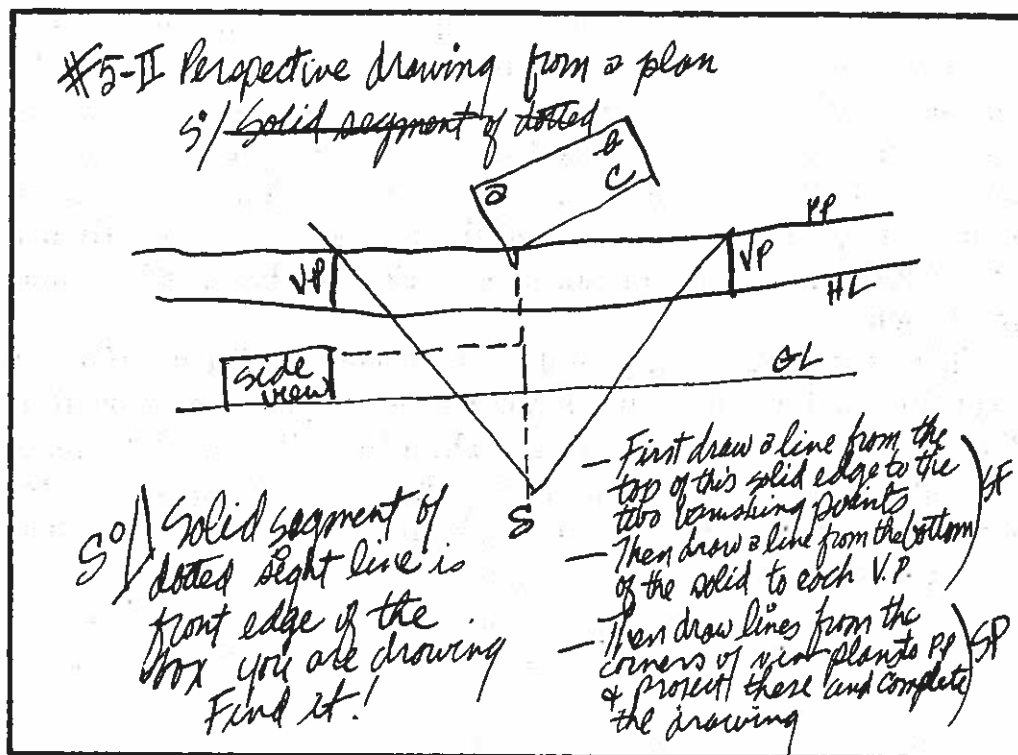 #5-II Perspective drawing from a plan
S°/ Solid segment of dotted
a
b
C
PP
VP
VP
HL
side
view
GL
S
S°/ Solid segment of
dotted sight line is
front edge of the
box you are drawing
Find it!
— First draw a line from the
top of this solid edge to the
two vanishing points
— Then draw a line from the bottom
of the solid to each V.P.
SF
— Then draw lines from the
corners of view plan to PP
& project these and complete
the drawing
SP